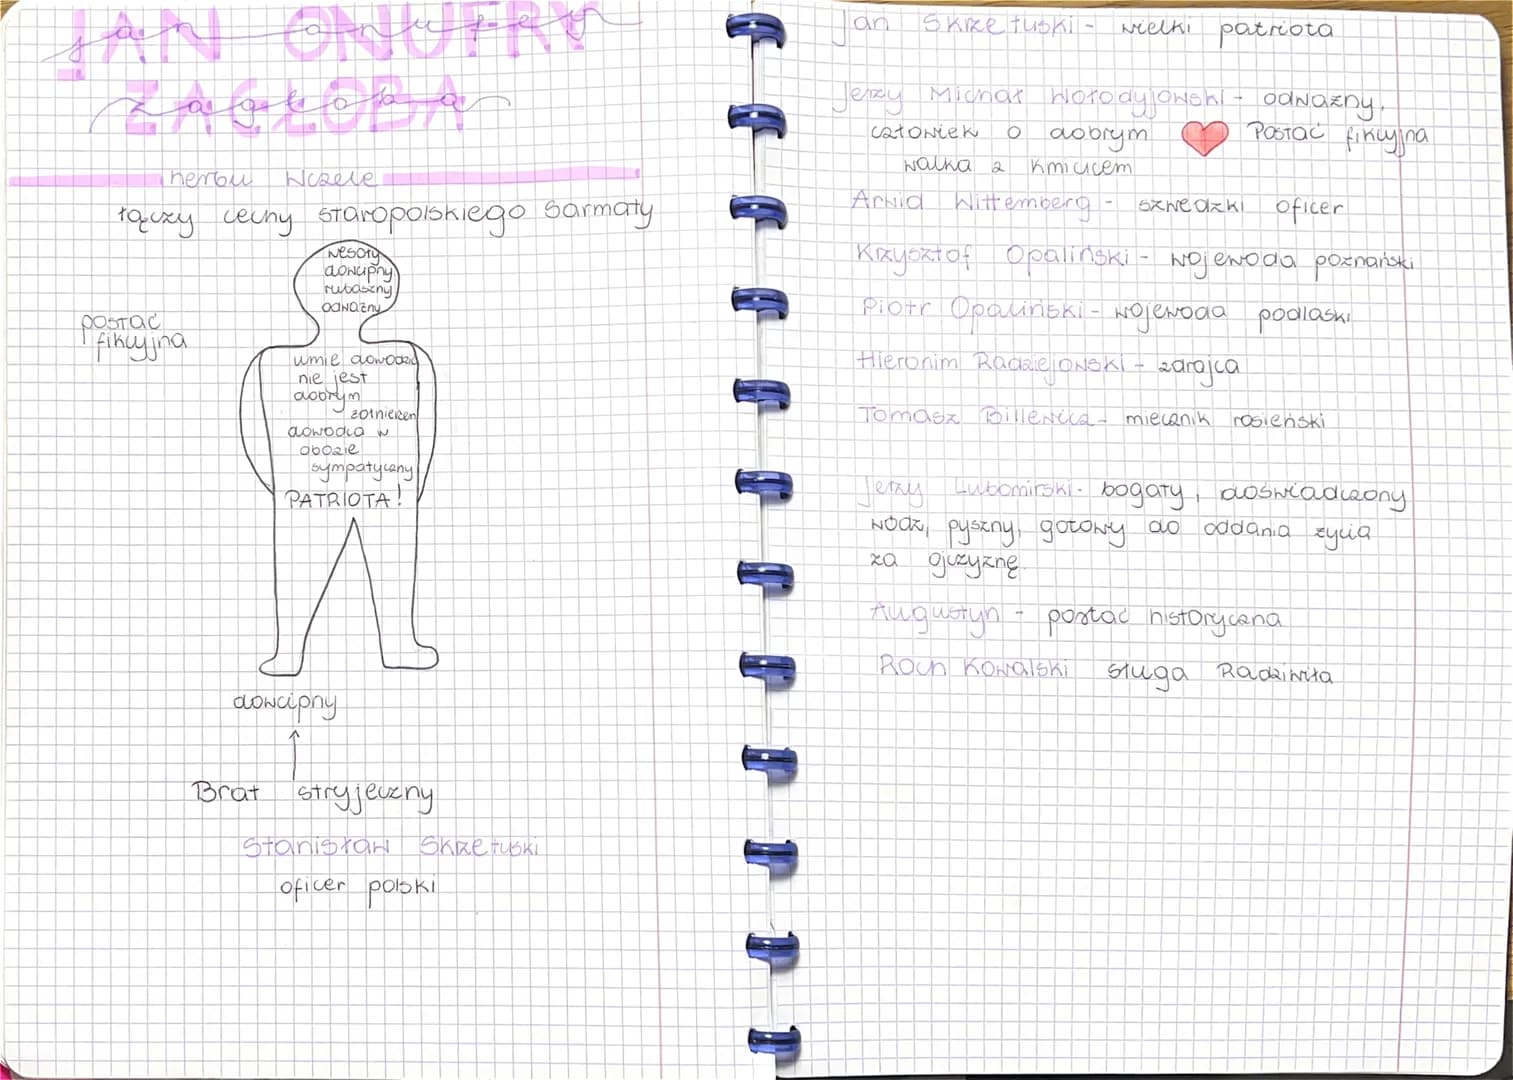 JAN ONUFRY
jan onufry
ZAGŁOBA
zagłoba
herbu Wczele
łączy cechy staropolskiego Sarmaty
wesoły
dowcipny
rubaszny
odważny
postać
fikcyjna
umie dowodzić
nie jest
dobrym
żołnierzem
dowodca w
obozie
sympatyczny
PATRIOTA!
dowcipny
Brat stryjeczny
Stanisław Skrzetuski
oficer polski
Jan Skrzetuski - wielki patriota
Jerzy Michał Wołodyjowski - odważny,
człowiek o dobrym ❤ Postać fikcyjna
walka z Kmicicem
Arwid Wittemberg - szwedzki oficer
Krzysztof Opaliński - wojewoda poznański
Piotr Opaliński - wojewoda podlaski
Hieronim Radziejowski - zdrajca
Tomasz Billewicz - miecznik rosieński
Jerzy Lubomirski - bogaty, doświadczony
wódz, pyszny, gotowy do oddania życia
za ojczyznę.
Augustyn - postać historyczna
Roch Kowalski sługa Radziwiła